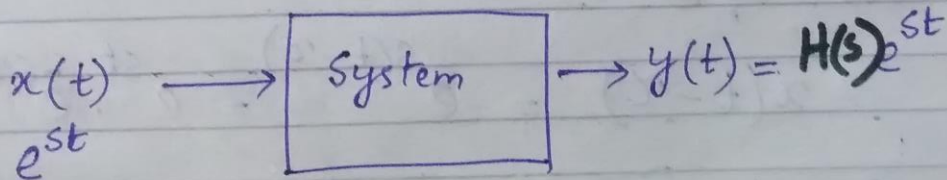 x(t) → System → y(t) = H(s)e^st
e^st